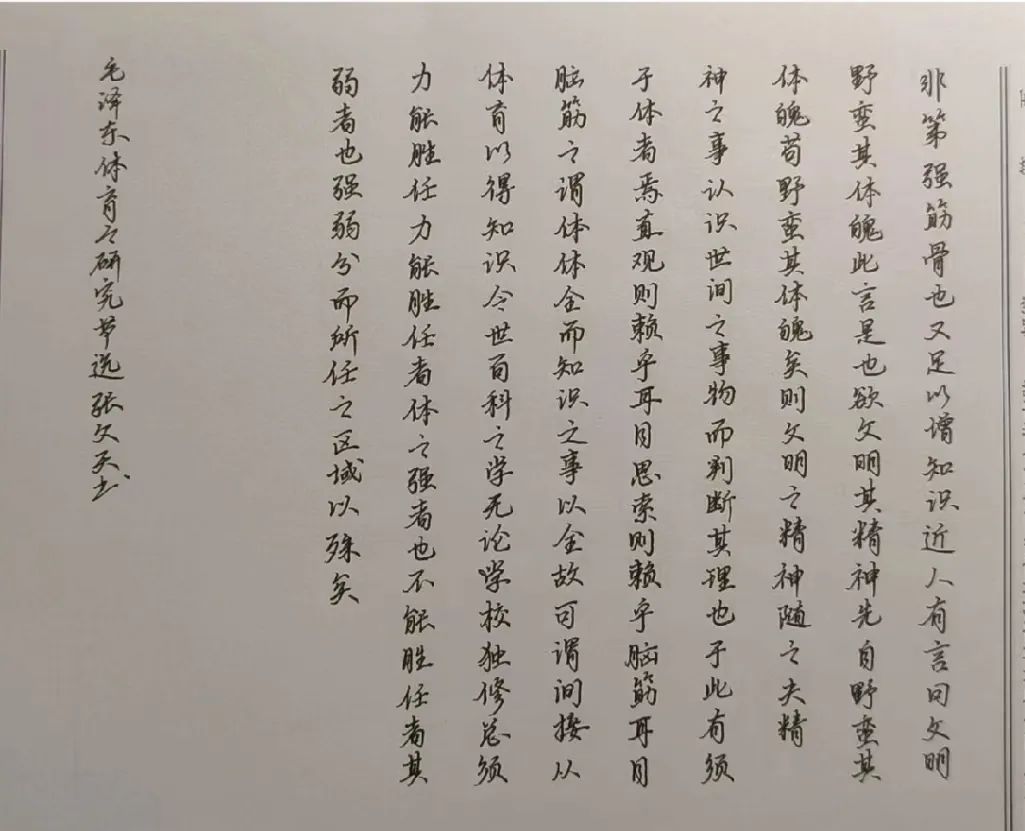 非第强筋骨也又足以增知识近人有言曰文明
野蛮其体魄此言是也欲文明其精神先自野蛮其
体魄苟野蛮其体魄矣则文明之精神随之夫精
神之事认识世间之事物而判断其理也于此有须
于体者焉直观则赖乎耳目思索则赖乎脑筋耳目
脑筋之谓体体全而知识之事以全故可谓间接从
体育以得知识今世百科之学无论学校独修总须
力能胜任力能胜任者体之强者也不能胜任者其
弱者也强弱分而所任之区域以殊矣
毛泽东体育之研究节选张文天书